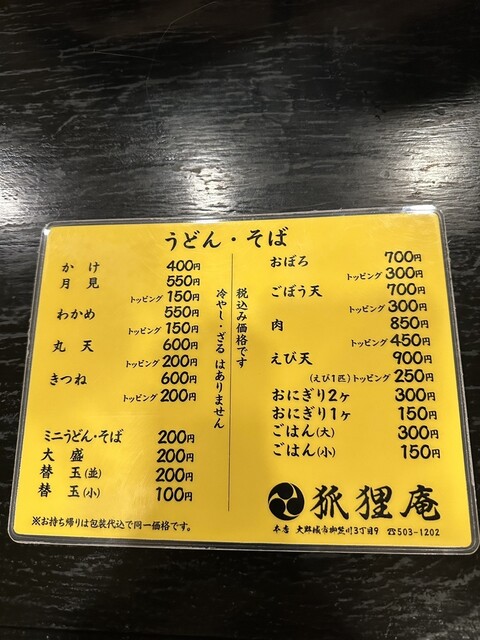 うどん・そば
かけ 400円
月見 550円
トッピング 150円
わかめ 550円
トッピング 150円
丸天 600円
トッピング 200円
きつね 600円
トッピング 200円
ミニうどん・そば 200円
大盛 200円
替玉(並) 200円
替玉(小) 100円
※お持ち帰りは包装代込で同一価格です。
税込み価格です
冷やし・ざる はありません
おぼろ 700円
トッピング 300円
ごぼう天 700円
トッピング 300円
肉 850円
トッピング 450円
えび天 900円
(えび1匹)トッピング 250円
おにぎり2ヶ 300円
おにぎり1ヶ 150円
ごはん(大) 300円
ごはん(小) 150円
狐狸庵
本店 大野城市御笠川3丁目9 ☎503-1202